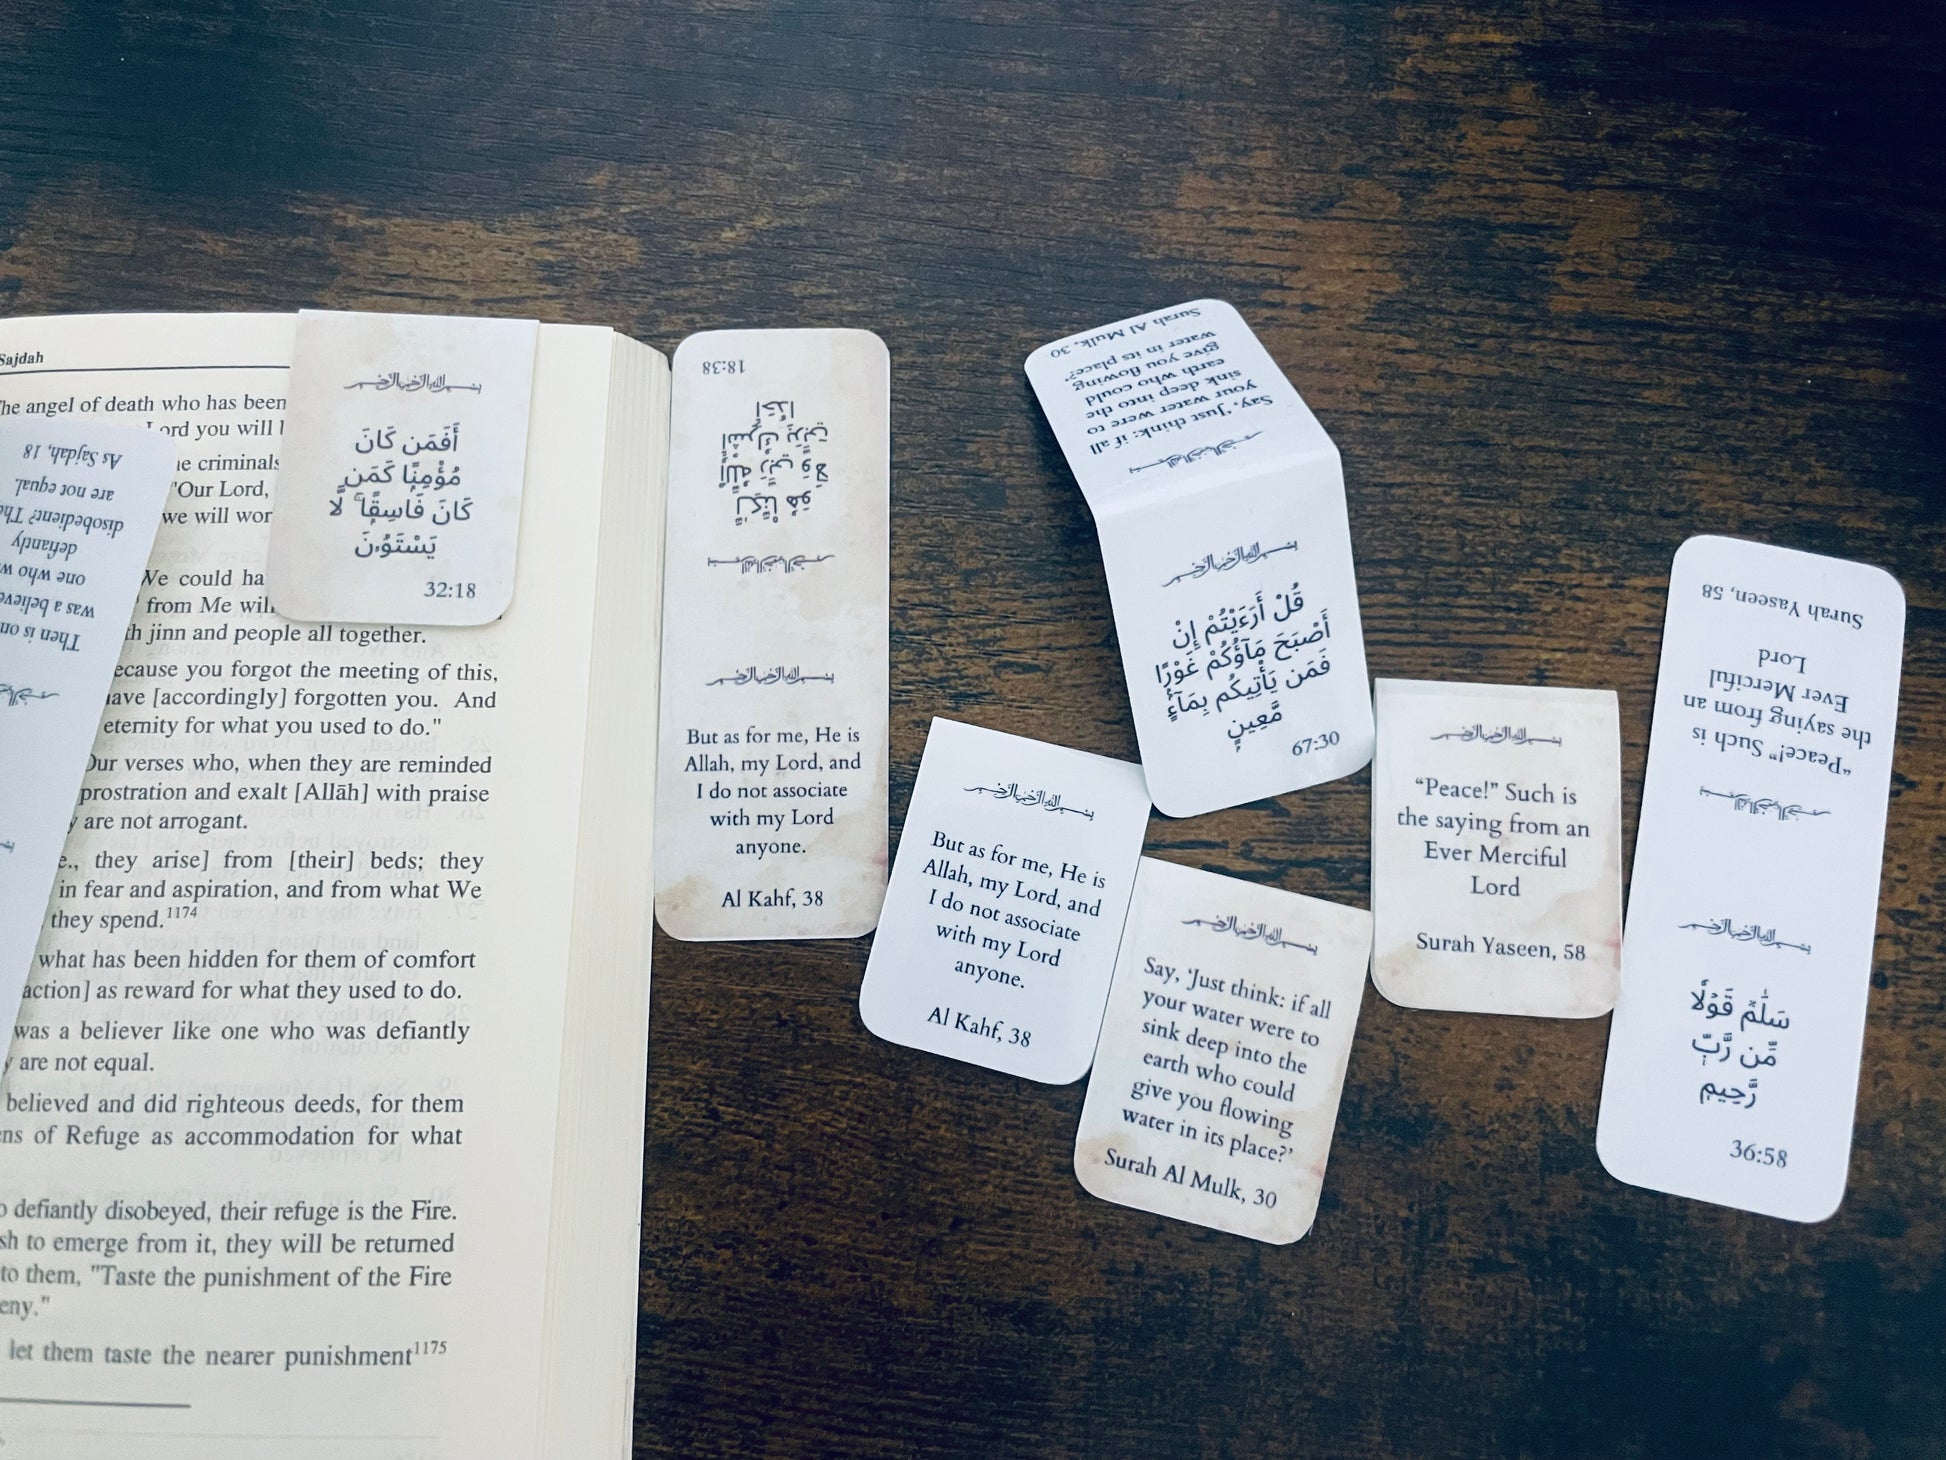 Sajdah
The angel of death who has been
Lord you will
criminals
"Our Lord,
we will
We could
from Me will
jinn and people all together.
because you forgot the meeting of this,
have [accordingly] forgotten you. And
eternity for what you used to do."
Our verses who, when they are reminded
prostration and exalt [Allāh] with praise
are not arrogant.
they arise] from [their] beds; they
in fear and aspiration, and from what We
they spend.1174
what has been hidden for them of comfort
action] as reward for what they used to do.
was a believer like one who was defiantly
are not equal.
believed and did righteous deeds, for them
of Refuge as accommodation for what
defiantly disobeyed, their refuge is the Fire.
to emerge from it, they will be returned
to them, "Taste the punishment of the Fire
let them taste the nearer punishment1175
As Sajdah, 18
are not equal.
disobedient?
defiantly
one who
was a
Then is
بسم الله الرحمن الرحيم
أَفَمَن كَانَ
مُؤْمِنًا كَمَن
كَانَ فَاسِقًا ۚ لَّا
يَسْتَوُۥنَ
32:18
18:38
بسم الله الرحمن الرحيم
بسم الله الرحمن الرحيم
But as for me, He is
Allah, my Lord, and
I do not associate
with my Lord
anyone.
Al Kahf, 38
بسم الله الرحمن الرحيم
But as for me, He is
Allah, my Lord, and
I do not associate
with my Lord
anyone.
Al Kahf, 38
بسم الله الرحمن الرحيم
Say, ‘Just think: if all
your water were to
sink deep into the
earth who could
give you flowing
water in its place?’
Surah Al Mulk, 30
بسم الله الرحمن الرحيم
قُلْ أَرَءَيْتُمْ إِنْ
أَصْبَحَ مَآؤُكُمْ غَوْرًا
فَمَن يَأْتِيكُم بِمَآءٍ
مَّعِينٍ
67:30
بسم الله الرحمن الرحيم
Say, ‘Just think: if all
your water were to
sink deep into the
earth who could
give you flowing
water in its place?’
Surah Al Mulk, 30
بسم الله الرحمن الرحيم
“Peace!” Such is
the saying from an
Ever Merciful
Lord
Surah Yaseen, 58
بسم الله الرحمن الرحيم
“Peace!” Such is
the saying from an
Ever Merciful
Lord
Surah Yaseen, 58
بسم الله الرحمن الرحيم
سَلَٰمٌ قَوْلًا
مِّن رَّبٍّ
رَّحِيمٍ
36:58